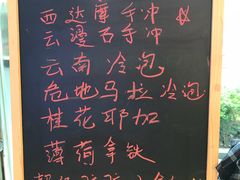 西达摩手冲
云漫石手冲
云南冷泡
危地马拉冷泡
桂花耶加
薄荷拿铁